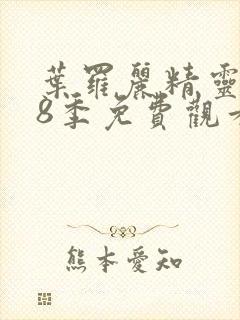 葉羅麗精靈
8季免費觀
熊本愛知